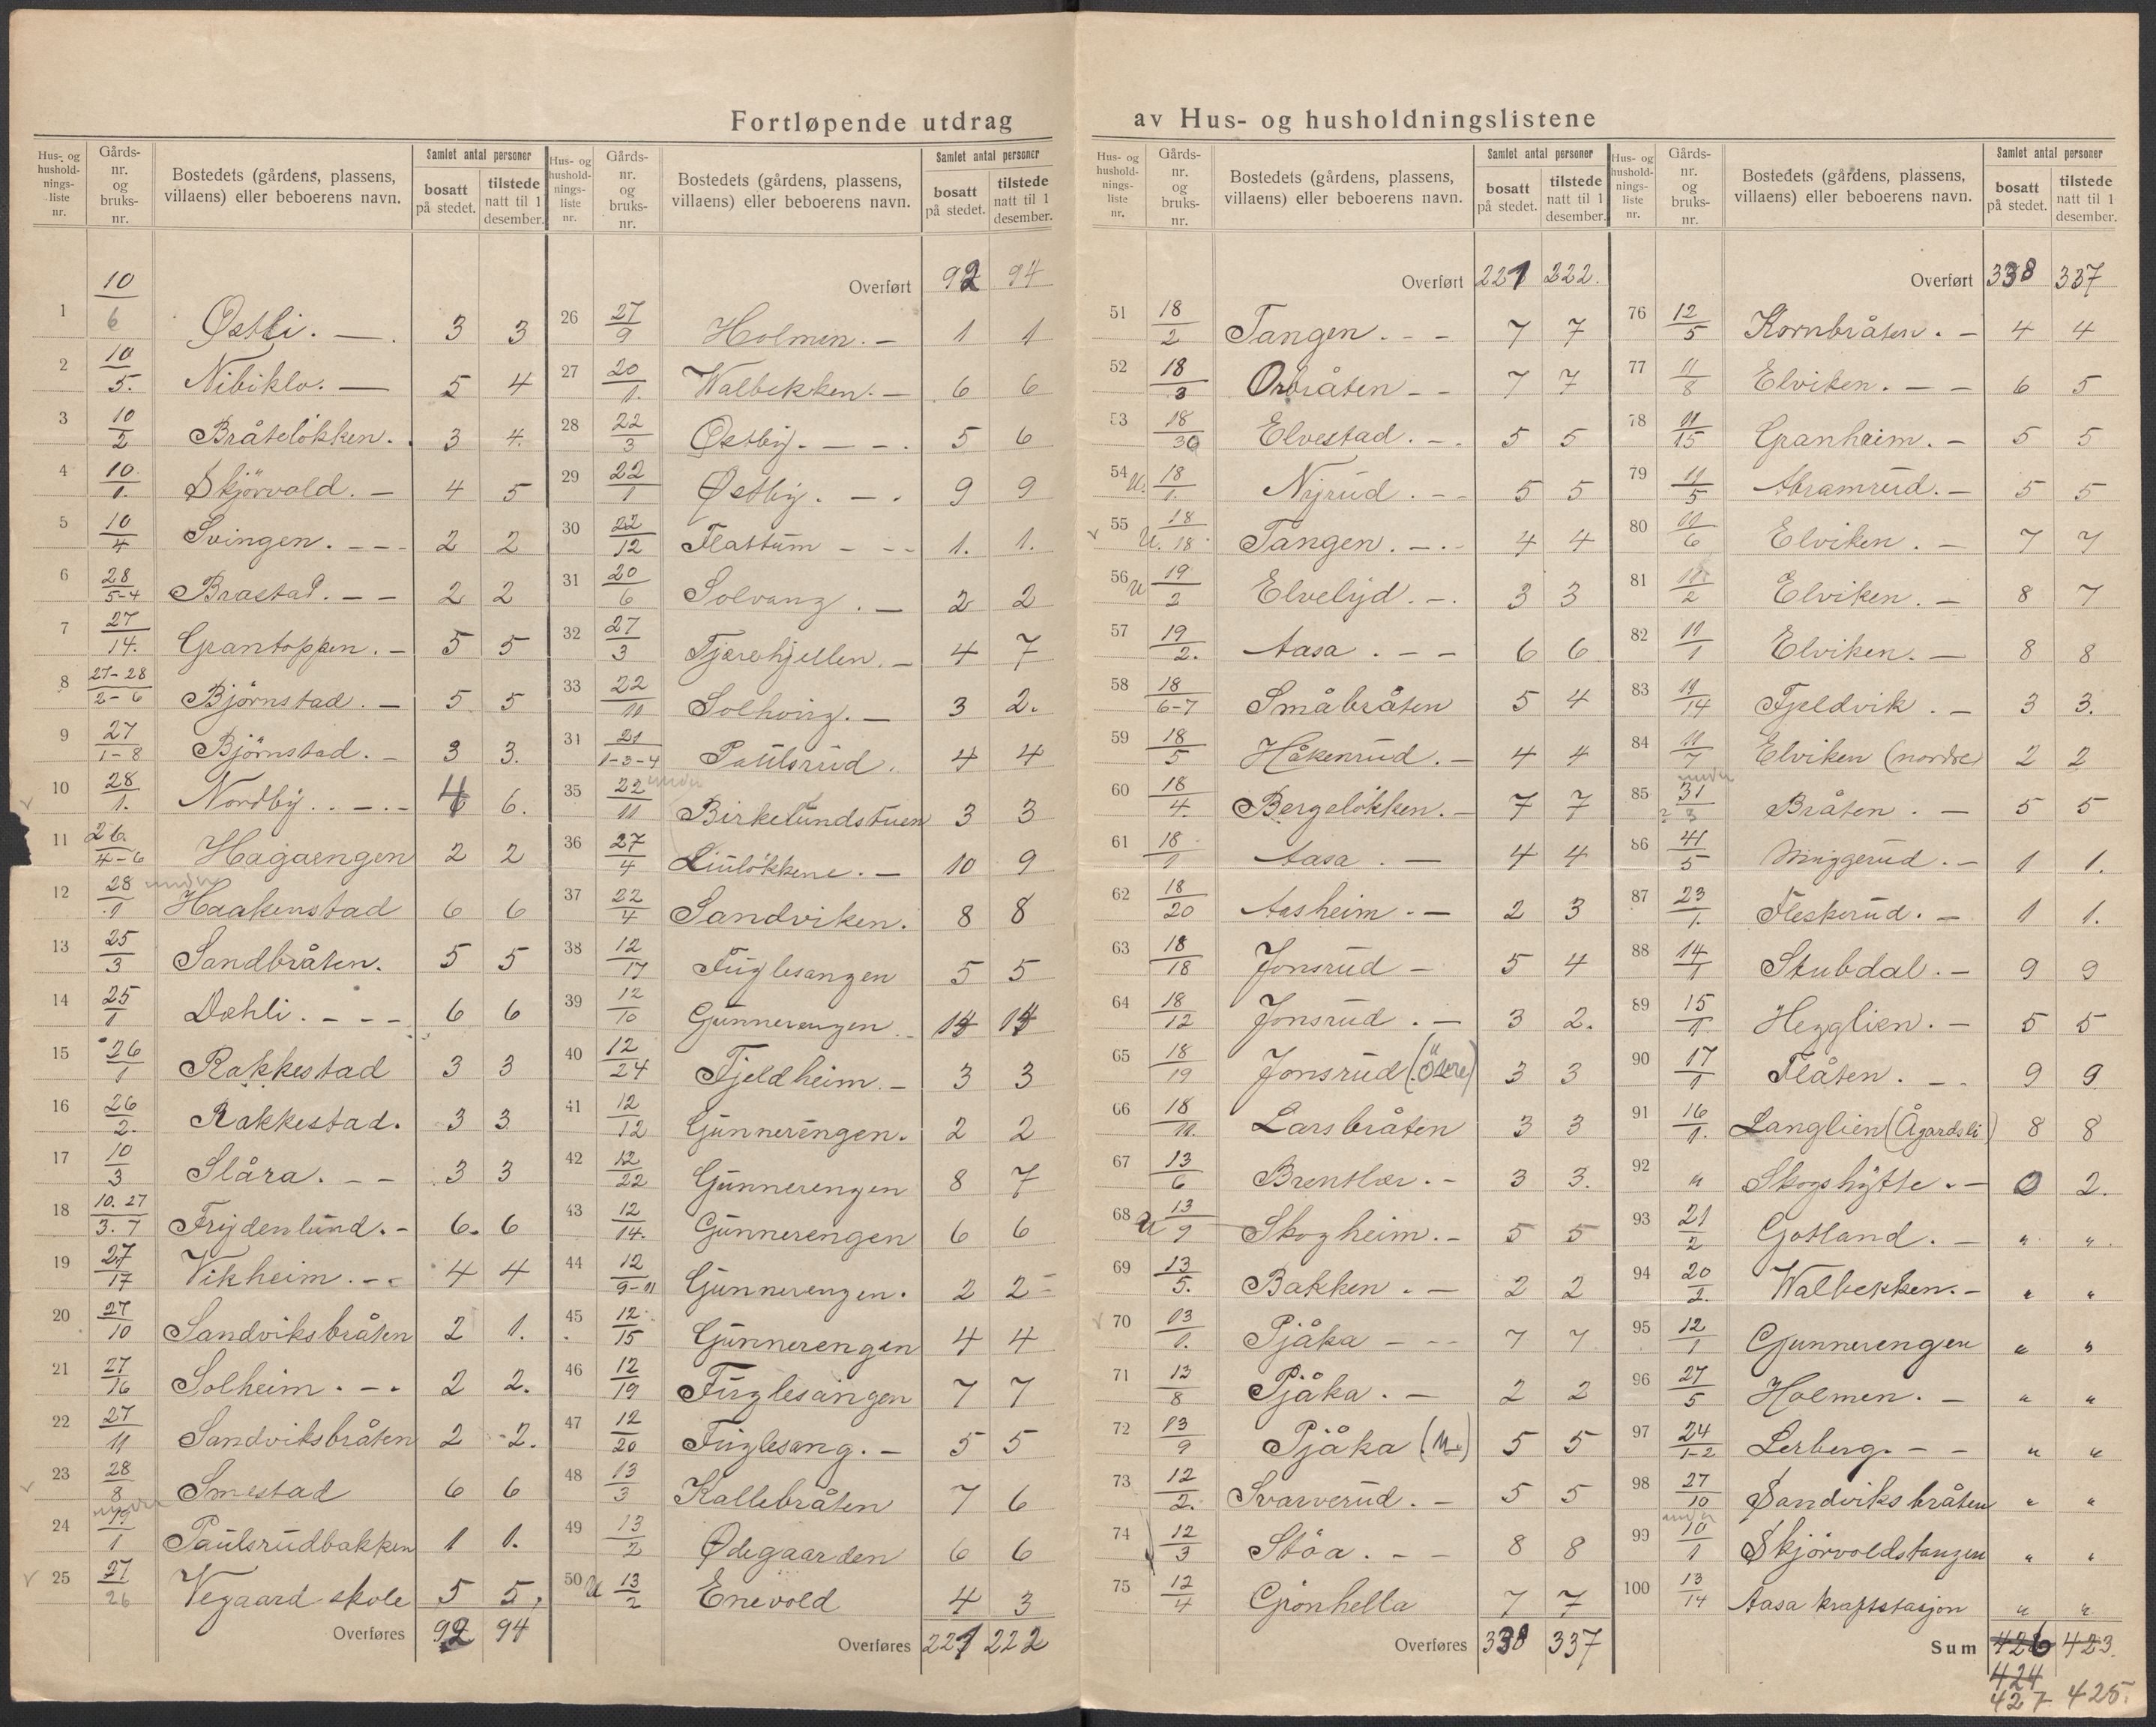 Fortløpende utdrag av Hus- og husholdningslistene
Hus- og husholdnings-liste nr. | Gårds-nr. og bruks-nr. | Bostedets (gårdens, plassens, villaens) eller beboerens navn. | Samlet antal personer bosatt på stedet. | tilstede natt til 1 desember.
1 10/6 Østli. — 3 3
2 10/5. Nibiklo. — 5 4
3 10/2 Bråteløkken. 3 4.
4 10/1. Skjörvold. — 4 5
5 10/4 Svingen. - - - 2 2
6 28/5-4 Brastad. - - 2 2
7 27/14. Grantoppen. - 5 5
8 27-28/2-6 Björnstad. — 5 5
9 27/1-8 Björnstad. - 3 3.
10 28/1. Nordby. . - . - 4 6.
11 26/4-6 Hagaengen 2 2
12 28/1 under Haakenstad 6 6
13 25/3 Sandbråten. 5 5
14 25/1 Dæhli. - - - 6 6
15 26/1 Rakkestad 3 3
16 26/2. Rakkestad. 3 3
17 10/3 Slåra. - - 3 3
18 10. 27/3. 7 Frydenlund. - 6. 6
19 27/17 Vikheim. - - 4 4
20 27/10 Sandviksbråten 2 1.
21 27/16 Solheim. - . 2 2.
22 27/11 Sandviksbråten 2 2.
23 28/8 Smestad 6 6
24 under /1 Paulsrudbakken 1 1.
25 27/26 Vegaard skole 5 5.
Overføres 92 94
Hus- og husholdnings-liste nr. | Gårds-nr. og bruks-nr. | Bostedets (gårdens, plassens, villaens) eller beboerens navn. | Samlet antal personer bosatt på stedet. | tilstede natt til 1 desember.
Overført 92 94
26 27/9 Holmen. - 1 1
27 20/1. Walbekken. - 6 6
28 22/3 Østby. - - - 5 6
29 22/1 Østby. - . 9 9
30 22/12 Flattum - - - 1. 1.
31 20/6 Solvang. - 2 2
32 27/3 Tjærehjellen. - 4 7
33 22/11 Solhaug. - 3 2.
31 21/1-3-4 Paulsrud. 4 4
35 22/11 under Birkelundstuen 3 3
36 27/4 Liuløkkene. - 10 9
37 22/4 Sandviken. 8 8
38 12/17 Fuglesangen 5 5
39 12/10 Gunnerengen. -
40 12/24 Fjeldheim. - 3 3
41 12/12 Gunnerengen. 2 2
42 12/22 Gunnerengen 8 7
43 12/14. Gunnerengen 6 6
44 12/9-11 Gunnerengen. 2 2
45 12/15 Gunnerengen 4 4
46 12/19 Fuglesangen 7 7
47 12/20 Fuglesang. - 5 5
48 13/3 Kallebråten 7 6
49 13/2 Ødegaarden 6 6
50 U 13/2 Enevold 4 3
Overføres 221 222
Hus- og husholdnings-liste nr. | Gårds-nr. og bruks-nr. | Bostedets (gårdens, plassens, villaens) eller beboerens navn. | Samlet antal personer bosatt på stedet. | tilstede natt til 1 desember.
Overført 221 222.
51 18/2 Tangen. - - 7 7
52 18/3 Orbråten - - 7 7
53 18/30 Elvestad. - . 5 5
54 U. 18/1. Nyrud. - - 5 5
55 U. 18/18 Tangen. - . - 4 4
56 U 19/2 Elvelyd. - . 3 3
57 19/2. Aasa. - - 6 6
58 18/6-7 Småbråten 5 4
59 18/5 Håkenrud. - 4 4
60 18/4. Bergeløkken. - 7 7
61 18/1 Aasa. - 4 4
62 18/20 Aasheim. - 2 3
63 18/18 Jonsrud - 5 4
64 18/12 Jonsrud. - 3 2.
65 18/19 Jonsrud 3 3
66 18/11. Larsbråten 3 3
67 13/6 Brentlær. - 3 3.
68 U 13/9 Skogheim. - 5 5
69 13/5. Bakken. - 2 2
70 13/1. Pjåka - - - 7 7
71 13/8 Pjåka. - 2 2
72 13/9 Pjåka 5 5
73 12/2. Svarverud. - 5 5
74 12/3 Stöa. - - 8 8
75 12/4 Grönhella 7 7
Overføres 338 337
Hus- og husholdnings-liste nr. | Gårds-nr. og bruks-nr. | Bostedets (gårdens, plassens, villaens) eller beboerens navn. | Samlet antal personer bosatt på stedet. | tilstede natt til 1 desember.
Overført 338 337
76 12/5 Kornbråten. - 4 4
77 11/8 Elviken. - - 6 5
78 11/15 Granheim. - 5 5
79 11/5 Abramrud. - 5 5
80 11/6 Elviken. - 7 7
81 11/2 Elviken. - 8 7
82 11/1 Elviken. - 8 8
83 11/14 Fjeldvik. - 3 3.
84 11/7 Elviken (nordre) 2 2
85 under 31/3 Bråten. - 5 5
86 41/5 Minggerud. - 1 1.
87 23/1. Fleskerud. - 1 1.
88 14/1 Stubdal. - 9 9
89 15/1 Hegglien. - 5 5
90 17/1 Flåten. - . 9 9
91 16/1. Langlien (Ågardsli) 8 8
92 " Skogshytte. - 0 2.
93 21/2 Gotland. - " "
94 20/2. Walbekken. - " "
95 12/1 Gjunnerengen " "
96 27/5 Holmen. - " "
97 24/1-2 Lerberg. - - " "
98 27/10 Sandviksbråten " "
99 under 10/1 Skjörvoldstangen " "
100 13/14 Aasa kraftstasjon " "
Sum 426 423.
424
427 425.